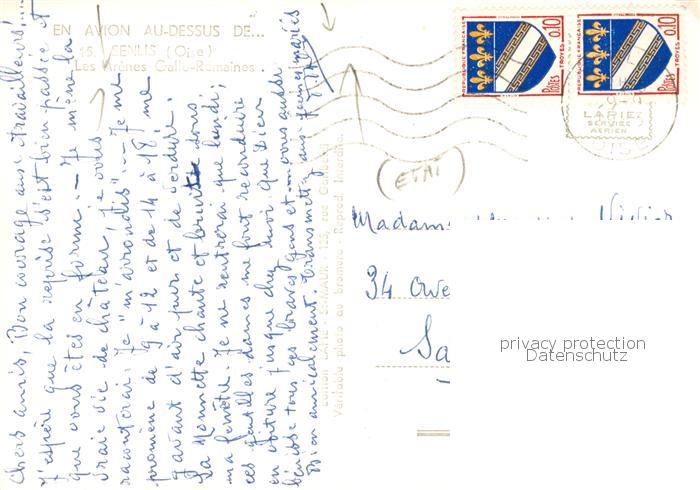 EN AVION AU-DESSUS DE...
15. SENLIS (Oise)
Les Arènes Gallo-Romaines
Chers amis, Bon courage aux travailleurs!...
J'espère que la reprise s'est bien passée et
que vous êtes en forme. - Je mène la
vraie vie de château, je vous
raconterai. Je "m'arrondis". - Je me
promène de 9 à 12 et de 14 à 18, me
gavant d'air pur et de verdure.
La Mounette chante et bruisse sous
ma fenêtre. Je ne rentrerai que lundi,
ces gentilles dames me font reconduire
en voiture jusque chez moi. Que Dieu
bénisse tous ces braves gens et vous aussi
Bien amicalement. Transmettez aux jeunes mariés
Edition LAPIE - St-MAUR - 125, rue
Véritable photo au bromure - Reprod. Interdite
REPUBLIQUE FRANÇAISE
0,10
Postes
TROYES
REPUBLIQUE FRANÇAISE
0,10
Postes
TROYES
LAPIE
SERVICE
AERIEN
(ETAT)
Madame
34
Sa
privacy protection
Datenschutz